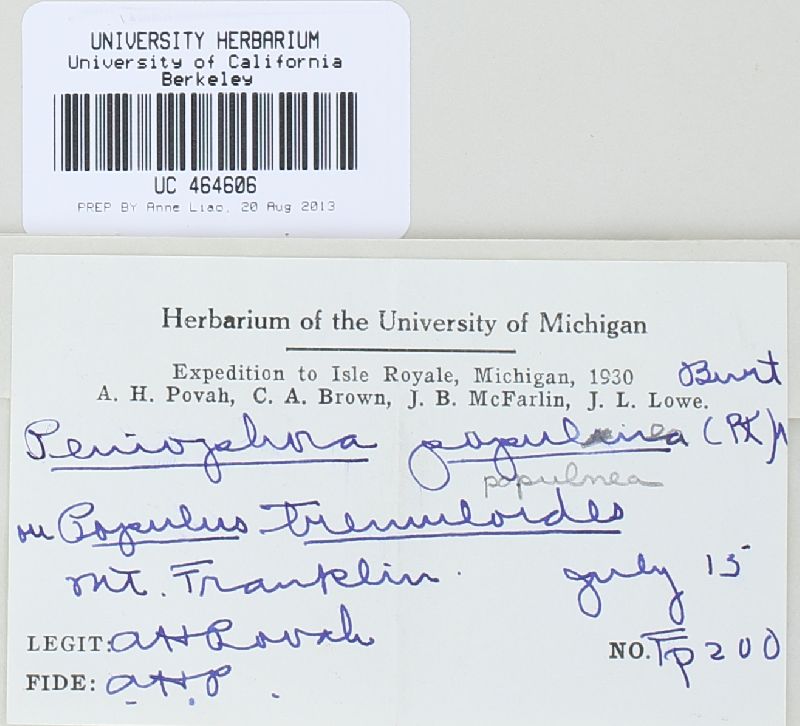 UNIVERSITY HERBARIUM
University of California
Berkeley
UC 464606
PREP BY Anne Liao, 20 Aug 2013
Herbarium of the University of Michigan
Expedition to Isle Royale, Michigan, 1930
A. H. Povah, C. A. Brown, J. B. McFarlin, J. L. Lowe.
Peniophora (Pk)
Burt
populnea
on Populus tremuloides
Mt. Franklin. July 15
LEGIT: AHPovah
FIDE: A.H.P. NO. Fp 200